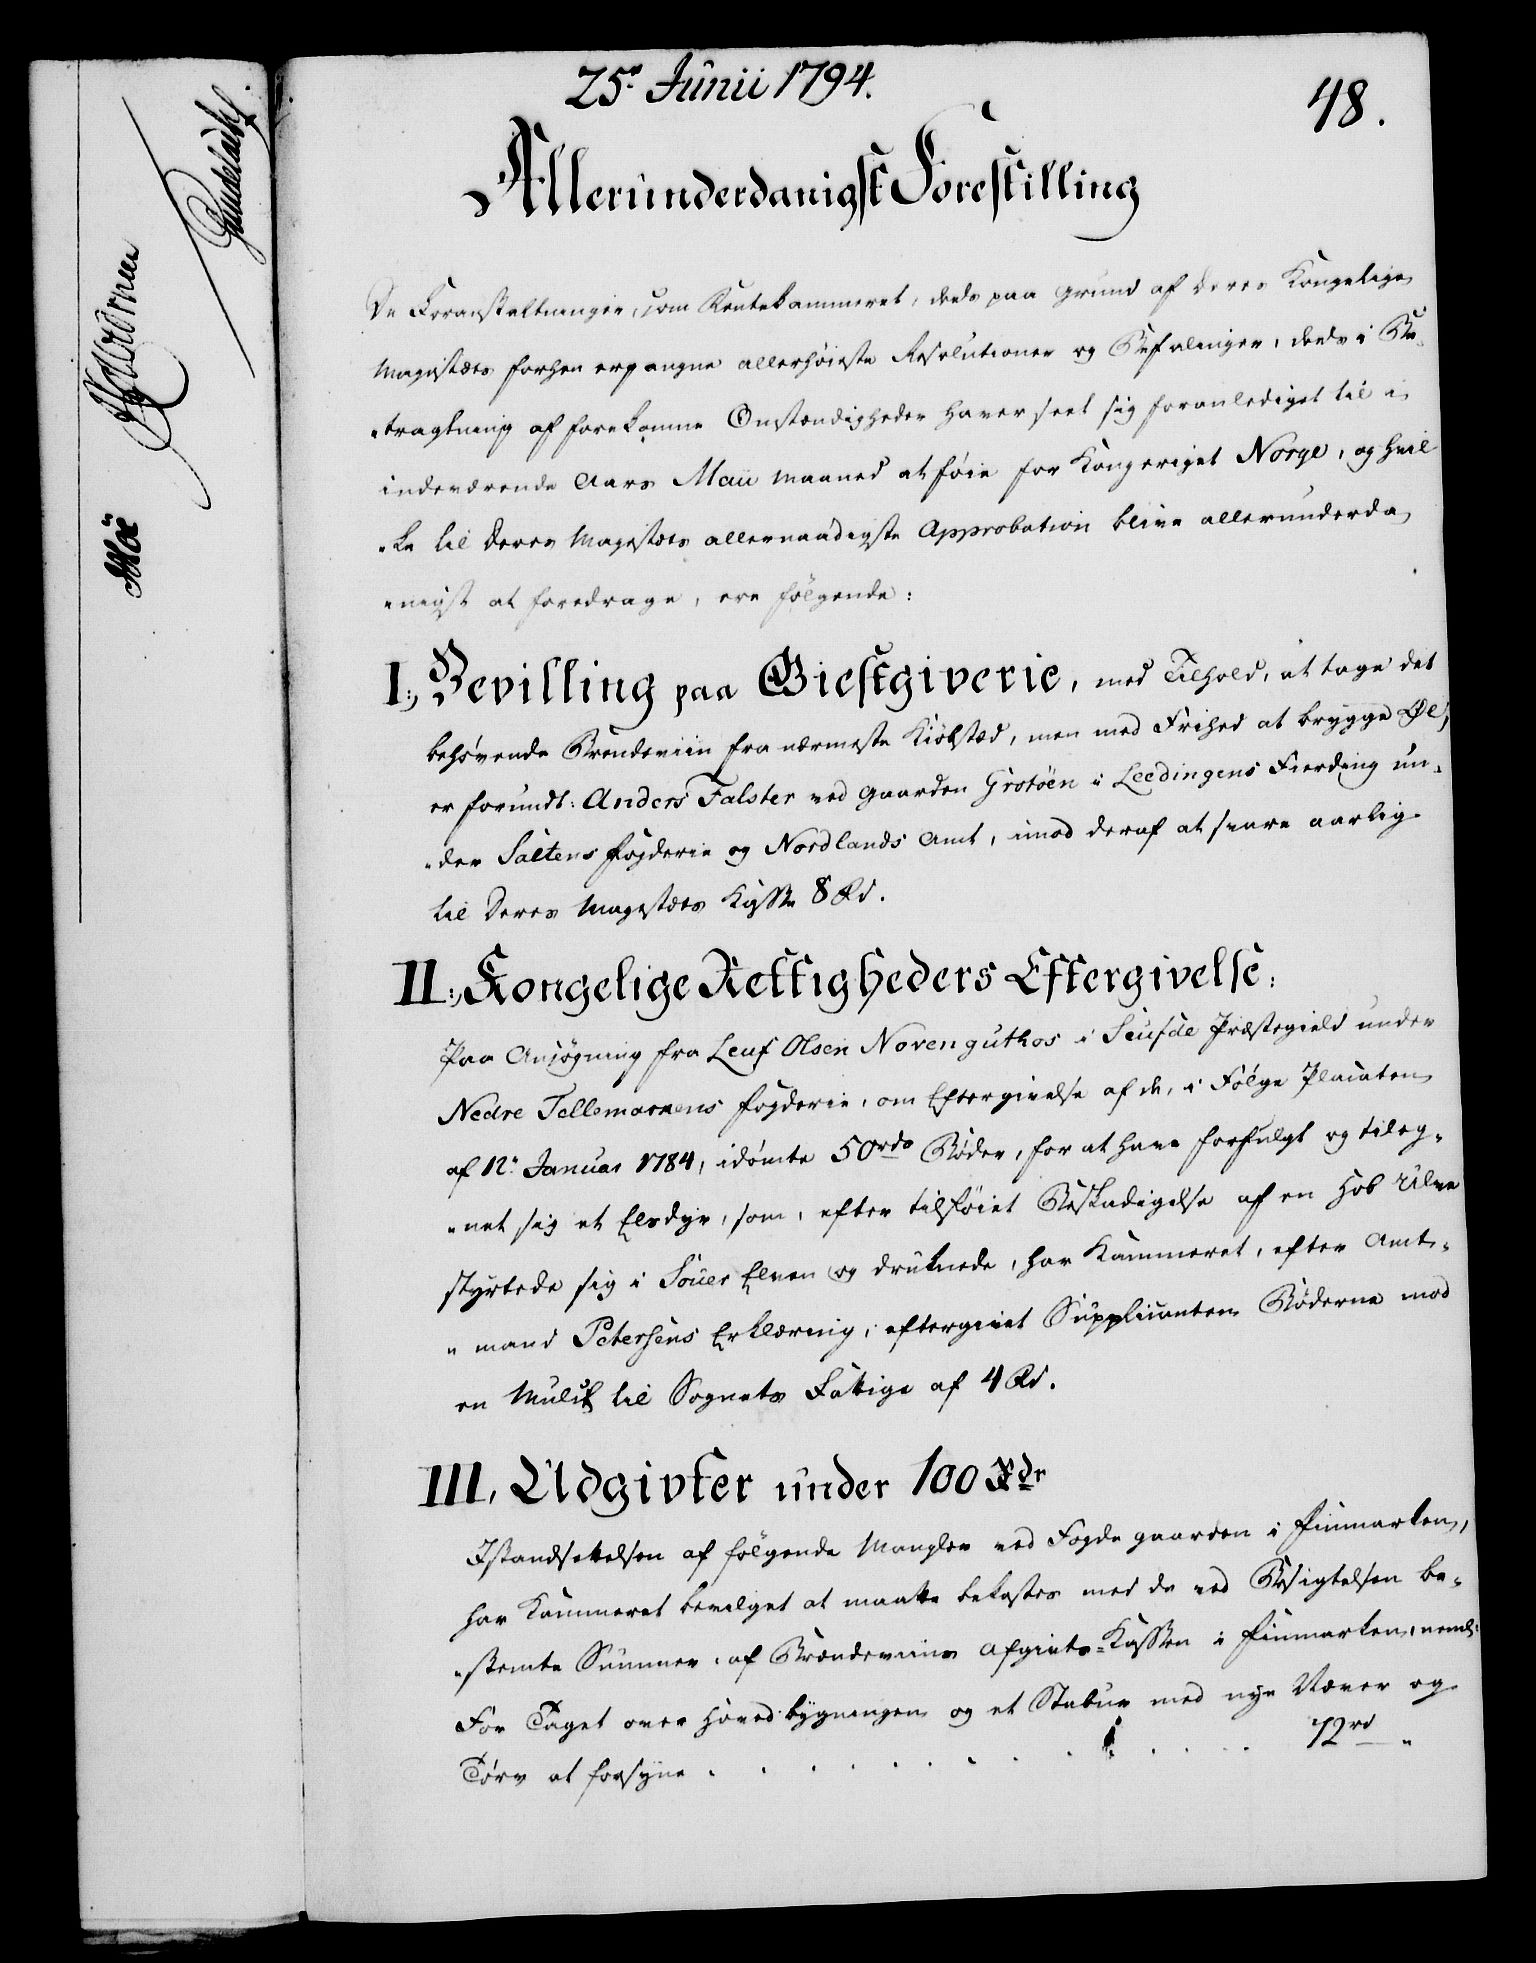 25de Junii 1794.
48.
Allerunderdanigst Forestilling
De Foranstaltninger, som Rentekammeret, deels paa Grund af Deres Kongelige
Majestæts forhen ergangne allerhøieste Resolutioner og Befalinger, deels i Be-
„tragtning af forekomne Omstændigheder haver seet sig foranlediget til i
indeværende Aars Maii Maaned at føie for Kongeriget Norge, og hvil
„ke til Deres Majestæts allernaadigste Approbation blive allerunderda
„nigst at foredrage, ere følgende:
I., Bevilling paa Giestgiverie, med Tilhold, at tage det
behøvende Brændeviin fra nærmeste Kiøbstæd, men med Frihed at brygge Øl,
er forundt: Anders Falster ved Gaarden Grotöen i Leedingens Fierding un-
„der Saltens Fogderie og Nordlands Amt, imod deraf at svare aarlig
til Deres Majestæts Kasse 8 Rd.
II., Kongelige Rettigheders Eftergivelse:
Paa Ansøgning fra Leuf Olsen Norenguthos i Seufde Præstegield under
Nedre Tellemarkens Fogderie, om Eftergivelse af de, i Følge Placaten
af 12te Januar 1784, idømte 50 rdr Bøder, for at have forfulgt og tileg-
„net sig et Elsdyr, som, efter tilføiet Beskadigelse af en Hob Ulve
styrtede sig i Souer Elven og druknede, har Kammeret, efter Amt-
„mand Petersens Erklæring, eftergivet Supplicanten Bøderne mod
en Mulct til Sognets Fattige af 4 Rd.
III, Udgivter under 100 Rdr
Istandsættelsen af følgende Mangler ved Fogde gaarden i Finmarken,
har Kammeret bevilget at maatte bekostes med de ved Besigtelsen be-
„stemte Summer, af Brændeviins Afgivts-Kassen i Finmarken, neml:
For Taget over Hovedbygningen og et Stabur med nye Næver og
Tørv at forsyne . . . . . . . . . . . 72 rd „